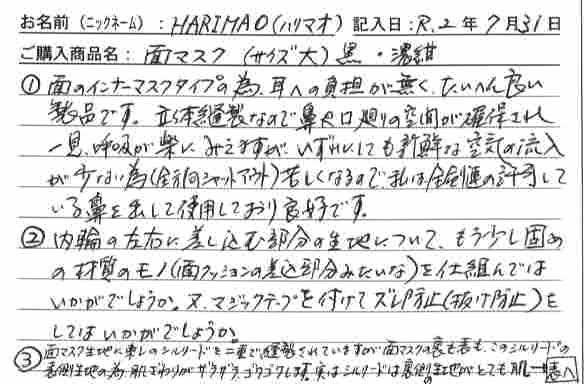 お名前（ニックネーム）：HARIMAO（ハリマオ）記入日：R.2年7月31日
ご購入商品名：面マスク（サイズ大）黒・濃紺
①面のインナーマスクタイプの為、耳への負担が無く、たいへん良い
製品です。立体縫製なので鼻や口廻りの空間が確保され
一見、呼吸が楽にみえますが、いずれにしても新鮮な空気の流入
が少ない為（全方向シャットアウト）苦しくなるので、私は全剣連の許可して
いる鼻を出して使用しており良好です。
②内輪の左右に差し込む部分の生地について、もう少し固め
の材質のモノ（面クッションの差込部分みたいな）を仕組んでは
いかがでしょうか。又、マジックテープを付けてズレ防止（抜け防止）を
してはいかがでしょうか。
③面マスク生地に楽しのシルリードを二重で縫製されていますが面マスクの裏も表も、このシルリードの
表側生地の為、肌ざわりがザラザラ、ゴワゴワします。実はシルリードは裏側の生地がとても肌 裏へ